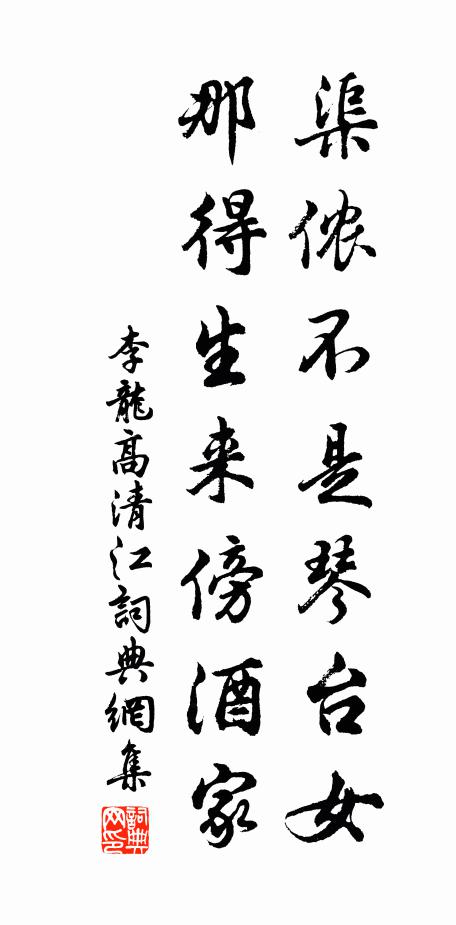 渠侬不是琴台女
那得生来傍酒家
李龍高清江詞典網集
詞典网印